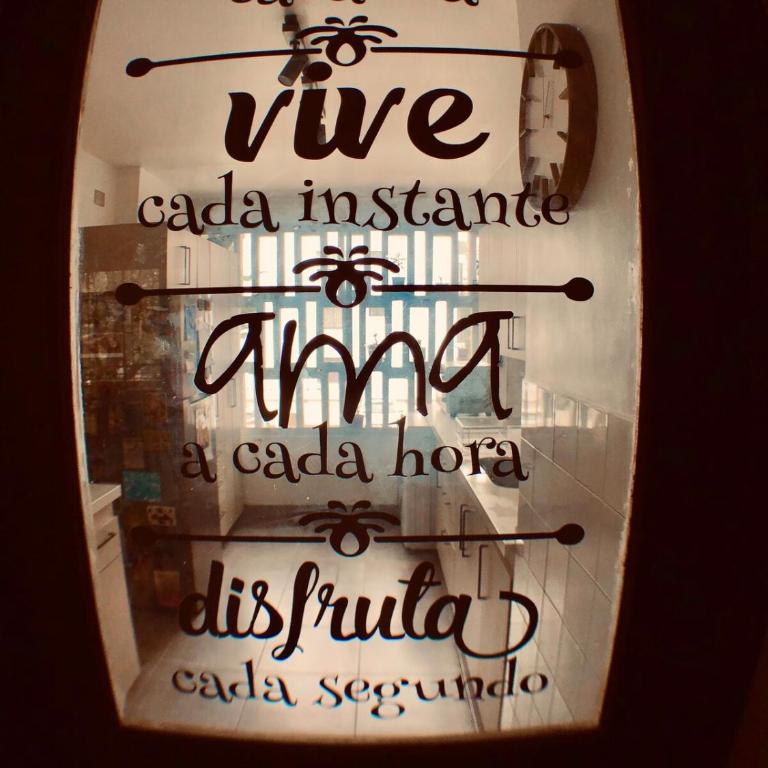 vive
cada instante
ama
a cada hora
disfruta
cada segundo